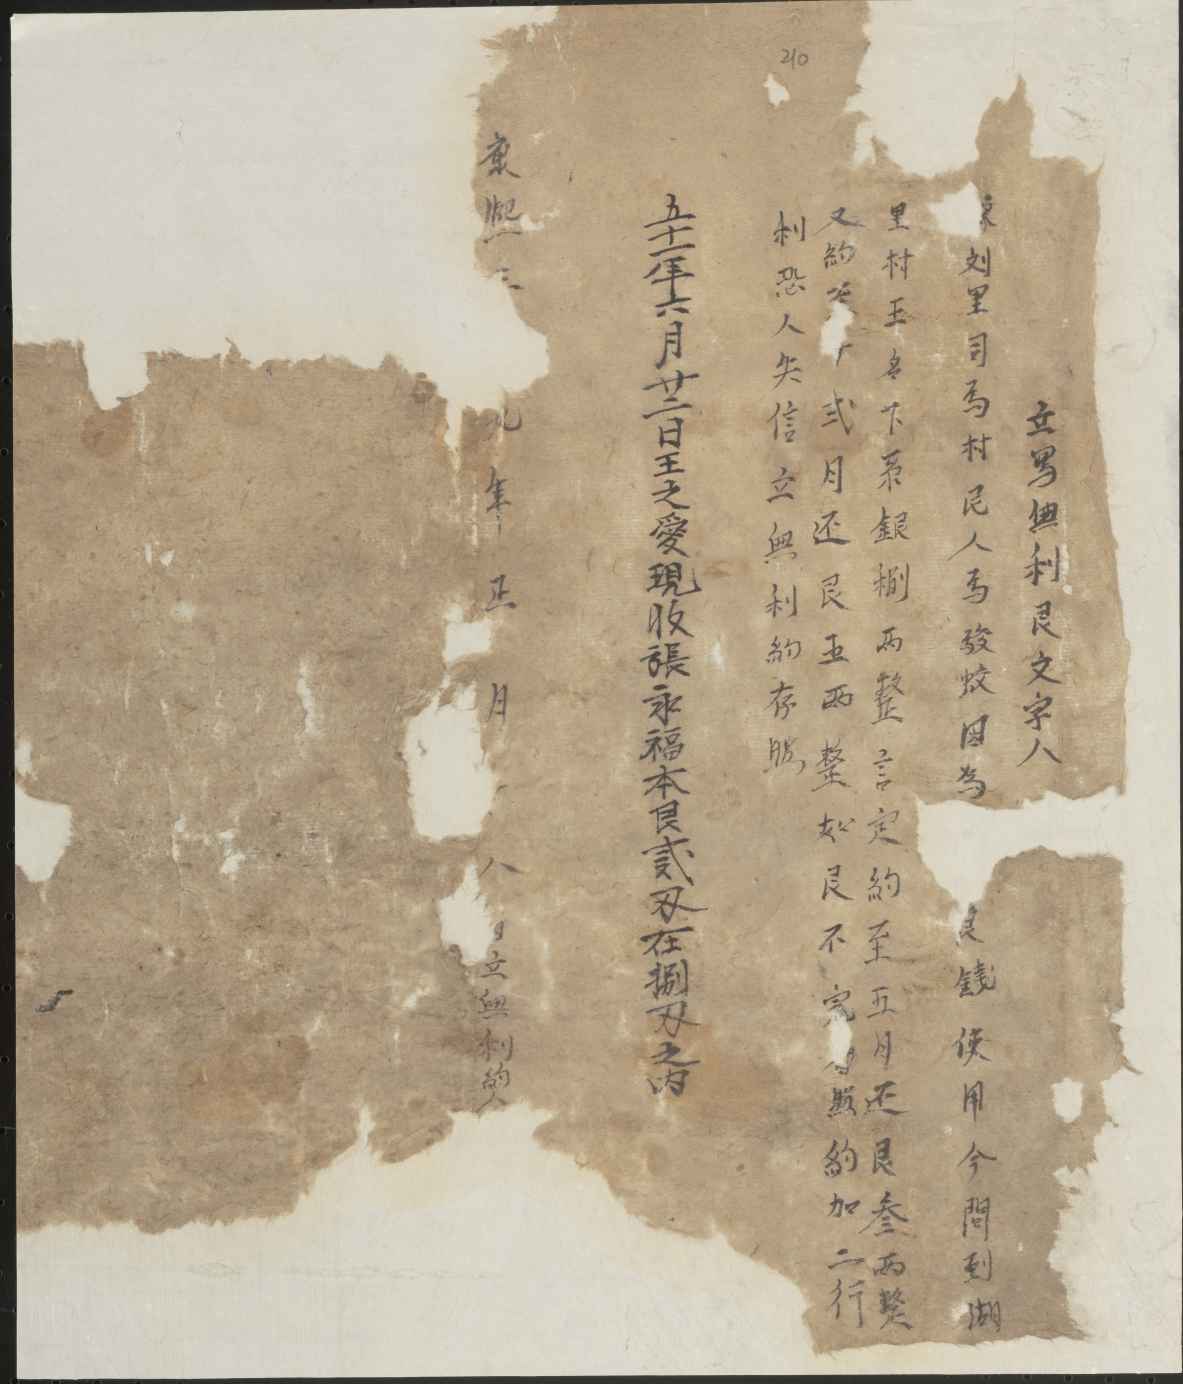 210
立寫無利艮文字人
刘里司馬村民人馬發蛟因為 艮錢使用今問到湖
里村王名下系銀捌两整言定約至五月还艮叁两整
又約至 弍月还艮五两整如艮不完 照約加二行
利恐人失信立無利約存照
五十一年六月廿二日王之愛現收張永福本艮貳刄在捌刄之内
康熙三 九年正月 八日立無利約人